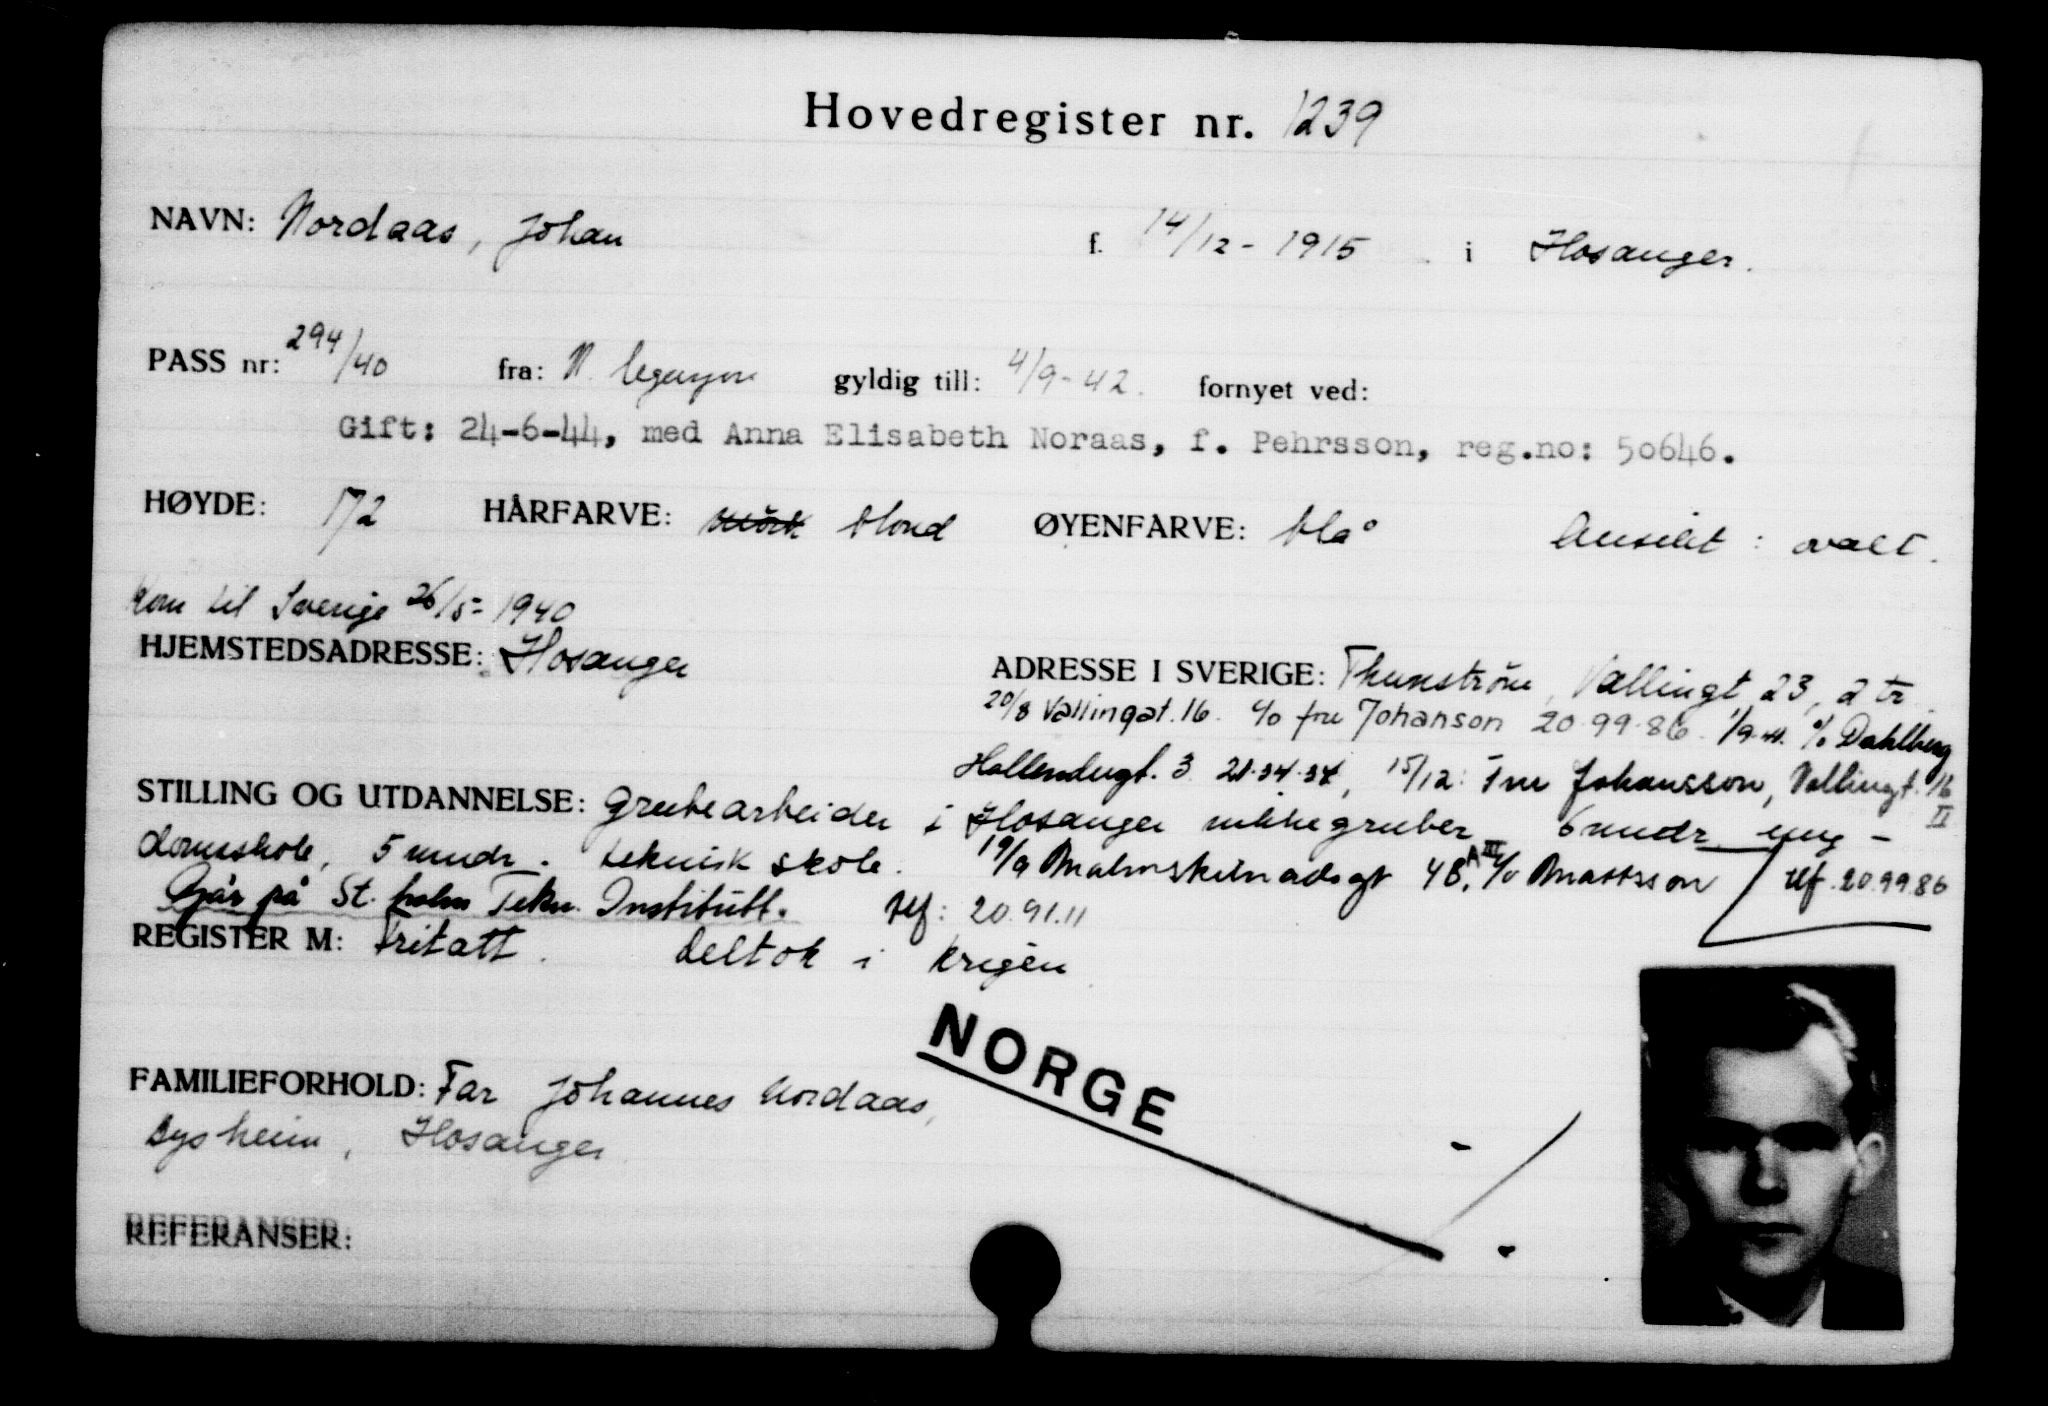 Hovedregister nr. 1239
NAVN: Nordaas, Johan f. 14/12 - 1915 i Hosanger.
PASS nr: 294/40 fra: N. legasjon gyldig till: 4/9-42. fornyet ved:
Gift: 24-6-44, med Anna Elisabeth Noraas, f. Pehrsson, reg.no: 50646.
HØYDE: 172 HÅRFARVE: mörk blond ØYENFARVE: blå Ansikt: ovalt.
Kom til Sverige 26/5- 1940
HJEMSTEDSADRESSE: Hosanger
ADRESSE I SVERIGE: Thunström, Vallingt 23, 2 tr.
20/8 Vallingat. 16. c/o fru Johanson 20.99.86. 1/9-41. c/o Dahlberg
Hollendugt. 3 21.34.34, 15/12: Fru Johansson, Vallingt. 16 II
STILLING OG UTDANNELSE: Grubearbeider i Hosanger nikkegruber 6 mndr. ung-
domsskole, 5 mndr. teknisk skole. 19/9 Malmskilnadsgt 48, A III c/o Mattsson tlf. 20.99.86
Går på St.holm Tekn. Institutt. tlf: 20.91.11
REGISTER M: Fritatt. Deltok i krigen
NORGE
FAMILIEFORHOLD: Far Johannes Nordaas,
Bysheim, Hosanger
REFERANSER: